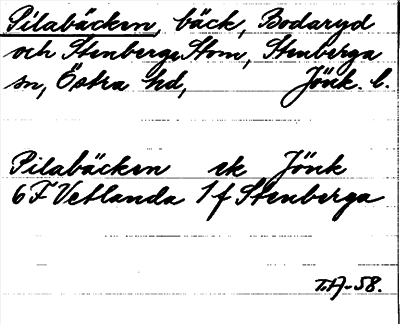 Pilabäcken, bäck, Bodaryd
och Stenberga Stom, Stenberga
sn, Östra hd, Jönk. l.
Pilabäcken ek Jönk
6F Vetlanda 1f Stenberga
T.A-58.